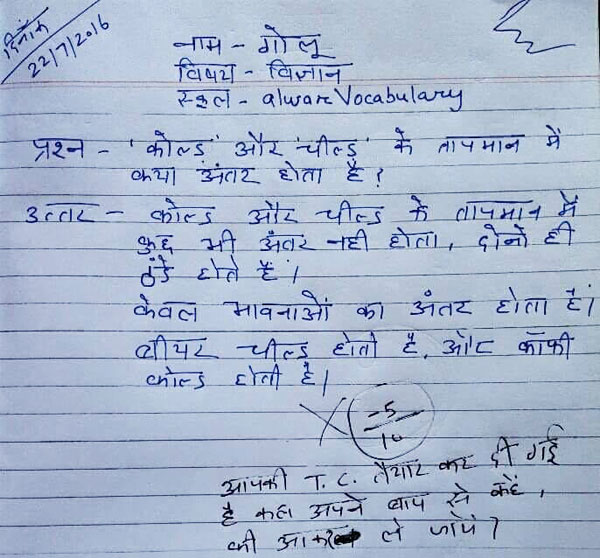 दिनाँक
22/7/2016
नाम - गोलू
विषय - विज्ञान
स्कूल - alwarevocabulary
प्रश्न - 'कोल्ड' और 'चील्ड' के तापमान में
क्या अंतर होता है?
उत्तर - कोल्ड और चील्ड के तापमान में
कुछ भी अंतर नही होता, दोनो ही
ठंडे होते है।
केवल भावनाओं का अंतर होता है।
बीयर चील्ड होती है, और कॉफी
कोल्ड होती है।
-5/10
आपकी T.C. तैयार कर दी गई
है कल अपने बाप से कहें,
की आकर ले जाये।